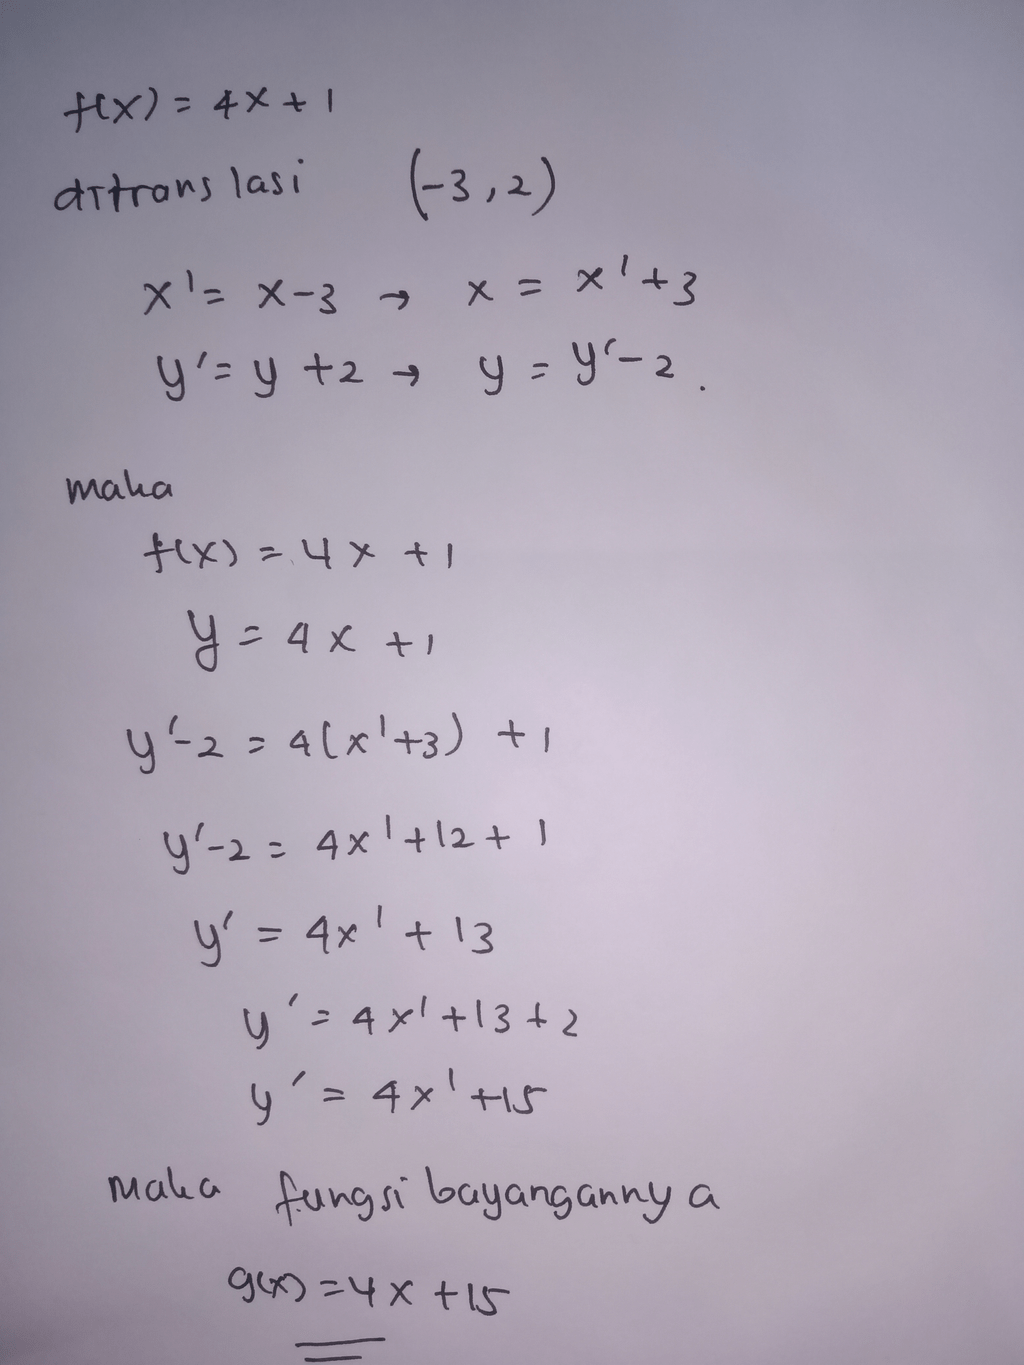 f(x) = 4x + 1
ditranslasi (-3, 2)
x' = x-3 → x = x'+3
y' = y +2 → y = y'-2.
maka
f(x) = 4x +1
y = 4x +1
y'-2 = 4(x'+3) +1
y'-2 = 4x'+12+ 1
y' = 4x' + 13
y' = 4x'+13+2
y' = 4x'+15
Maka fungsi bayangannya
g(x) = 4x +15